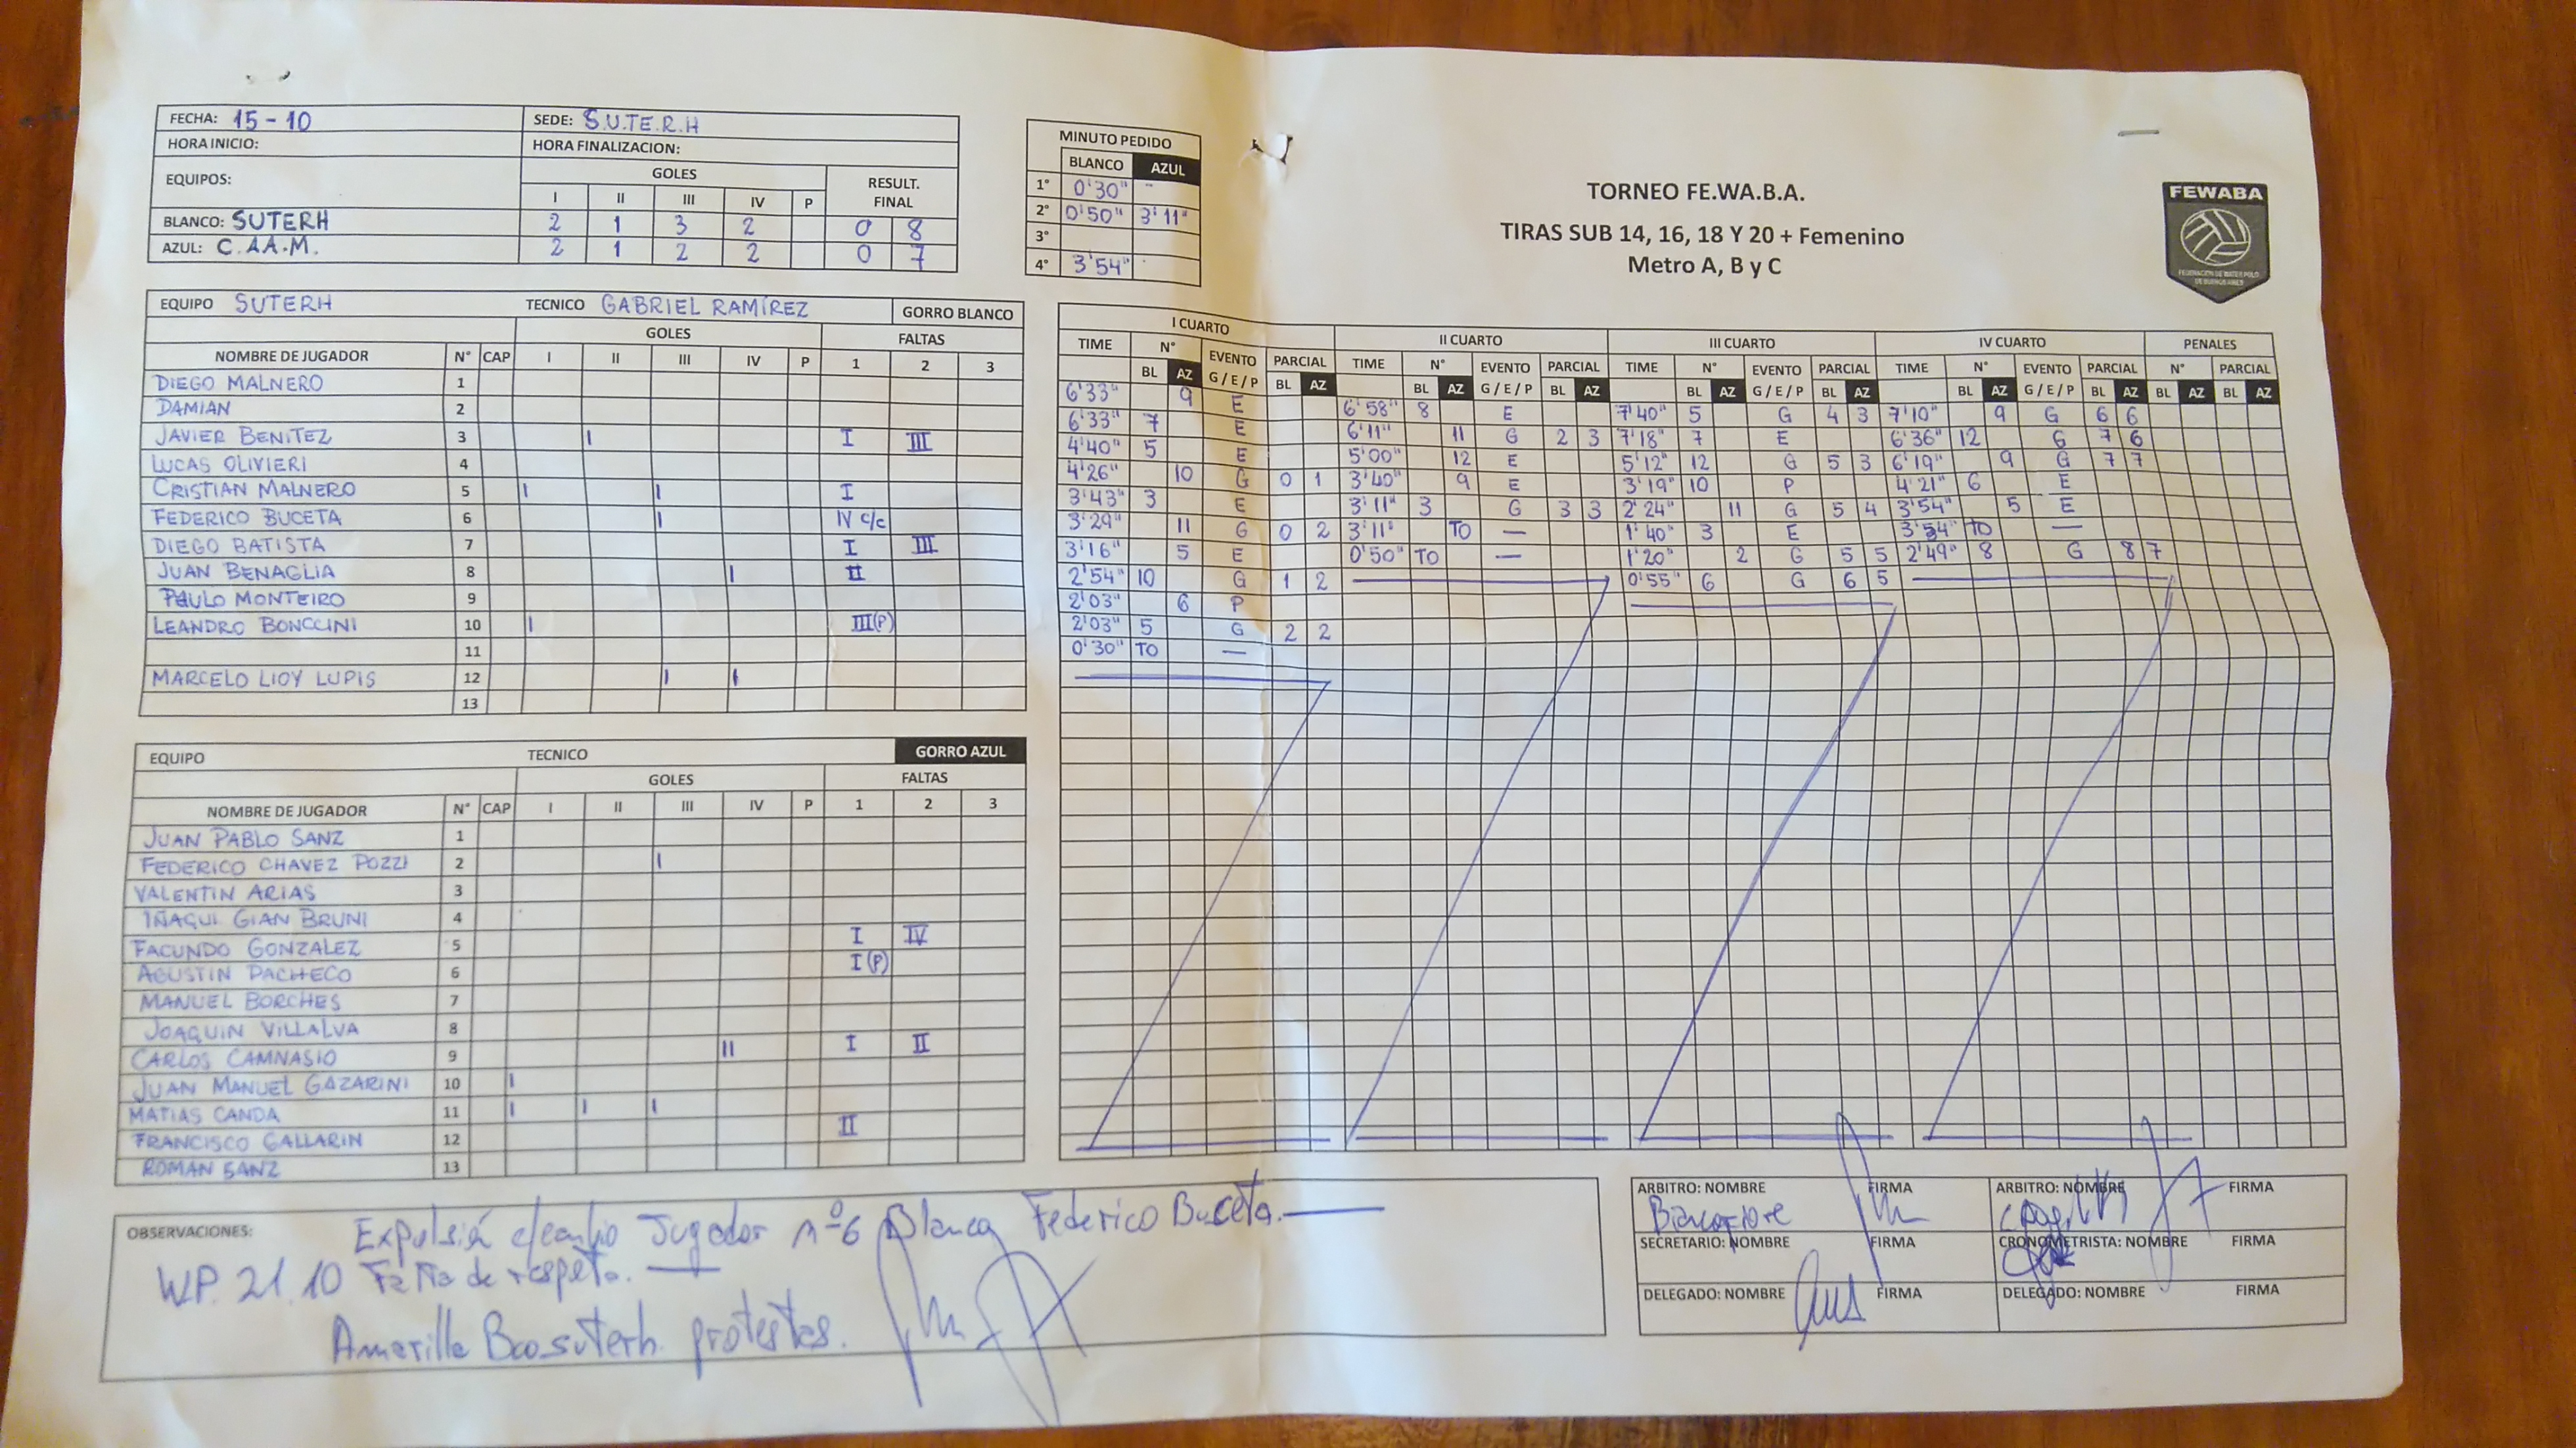 FECHA: 15 - 10 SEDE: S.U.TE.R.H
HORA INICIO: HORA FINALIZACION:
EQUIPOS: GOLES RESULT. FINAL
I II III IV P
BLANCO: SUTERH 2 1 3 2 0 8
AZUL: C.AA.M. 2 1 2 2 0 7
MINUTO PEDIDO
BLANCO AZUL
1° 0'30" -
2° 0'50" 3'11"
3°
4° 3'54"
TORNEO FE.WA.B.A.
TIRAS SUB 14, 16, 18 Y 20 + Femenino
Metro A, B y C
FEWABA
FEDERACION DE WATER POLO
DE BUENOS AIRES
EQUIPO SUTERH TECNICO GABRIEL RAMÍREZ GORRO BLANCO
GOLES FALTAS
NOMBRE DE JUGADOR N° CAP I II III IV P 1 2 3
DIEGO MALNERO 1
DAMIAN 2
JAVIER BENITEZ 3 I I III
LUCAS OLIVIERI 4
CRISTIAN MALNERO 5 I I I
FEDERICO BUCETA 6 I IV c/c
DIEGO BATISTA 7 I III
JUAN BENAGLIA 8 I II
PAULO MONTEIRO 9
LEANDRO BONCCINI 10 I III(P)
11
MARCELO LIOY LUPIS 12 I I
13
EQUIPO TECNICO GORRO AZUL
GOLES FALTAS
NOMBRE DE JUGADOR N° CAP I II III IV P 1 2 3
JUAN PABLO SANZ 1
FEDERICO CHAVEZ POZZI 2 I
VALENTIN ARIAS 3
IÑAQUI GIAN BRUNI 4
FACUNDO GONZALEZ 5 I IV
AGUSTIN PACHECO 6 I(P)
MANUEL BORCHES 7
JOAQUIN VILLALVA 8
CARLOS CAMNASIO 9 II I II
JUAN MANUEL GAZARINI 10 I
MATIAS CANDA 11 I I I
FRANCISCO GALLARIN 12 II
ROMAN SANZ 13
I CUARTO
TIME N° EVENTO PARCIAL
BL AZ G / E / P BL AZ
6'33" 9 E
6'33" 7 E
4'40" 5 E
4'26" 10 G 0 1
3'43" 3 E
3'29" 11 G 0 2
3'16" 5 E
2'54" 10 G 1 2
2'03" 6 P
2'03" 5 G 2 2
0'30" TO —
II CUARTO
TIME N° EVENTO PARCIAL
BL AZ G / E / P BL AZ
6'58" 8 E
6'11" 11 G 2 3
5'00" 12 E
3'40" 9 E
3'11" 3 G 3 3
3'11" TO —
0'50" TO —
III CUARTO
TIME N° EVENTO PARCIAL
BL AZ G / E / P BL AZ
7'40" 5 G 4 3
7'18" 7 E
5'12" 12 G 5 3
3'19" 10 P
2'24" 11 G 5 4
1'40" 3 E
1'20" 2 G 5 5
0'55" 6 G 6 5
IV CUARTO
TIME N° EVENTO PARCIAL
BL AZ G / E / P BL AZ
7'10" 9 G 6 6
6'36" 12 G 7 6
6'19" 9 G 7 7
4'21" 6 E
3'54" 5 E
3'54" TO —
2'49" 8 G 8 7
PENALES
N° PARCIAL
BL AZ BL AZ
OBSERVACIONES: Expulsión c/cambio Jugador nº6 Blanco Federico Buceta.
WP. 21.10 Falta de respeto.
Amarilla Bco.suterh. protestas.
ARBITRO: NOMBRE FIRMA ARBITRO: NOMBRE FIRMA
Biancofiore
SECRETARIO: NOMBRE FIRMA CRONOMETRISTA: NOMBRE FIRMA
DELEGADO: NOMBRE FIRMA DELEGADO: NOMBRE FIRMA